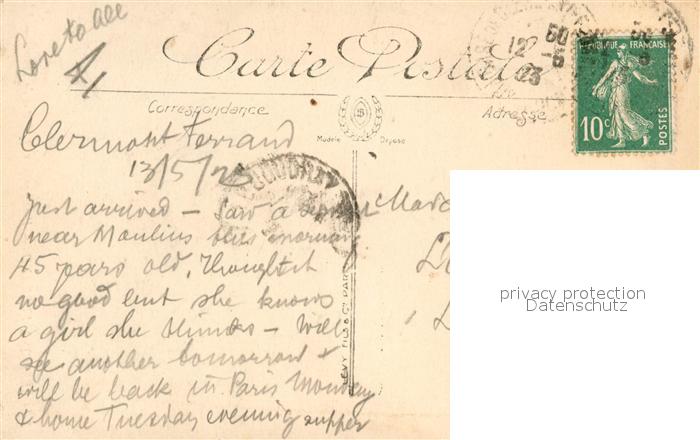 Love to all
Carte Postale
Correspondance
Adresse
Modèle Déposé
12 - 5
23
RÉPUBLIQUE FRANÇAISE
10c
POSTES
Clermont Ferrand
13/5/23
Just arrived – Saw a
near Moulins this morning
45 years old. Thought it
no good but she knows
a girl she thinks – Will
see another tomorrow &
will be back in Paris Monday
& home Tuesday evening supper
LEVY FILS & Cie PARIS
privacy protection
Datenschutz